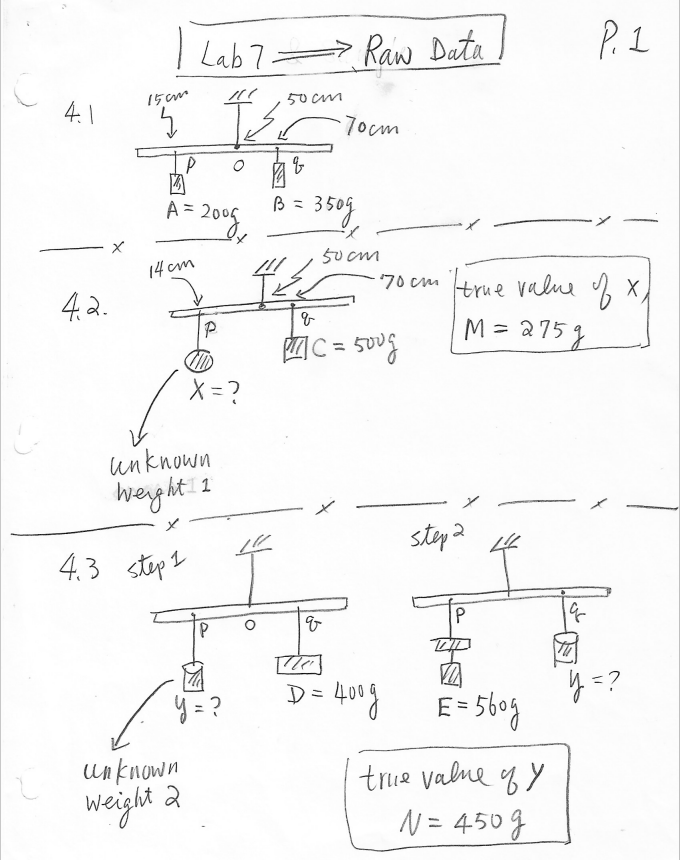 Lab 7 ⟹ Raw Data
P. 1
4.1
15cm
50cm
70cm
P
O
q
A = 200g
B = 350g
4.2.
14cm
50cm
70cm
P
q
C = 500g
X = ?
true value of X,
M = 275g
unknown
weight 1
4.3 step1
P
O
q
Y = ?
D = 400g
unknown
weight 2
step2
P
q
E = 560g
y = ?
true value of Y
N = 450g